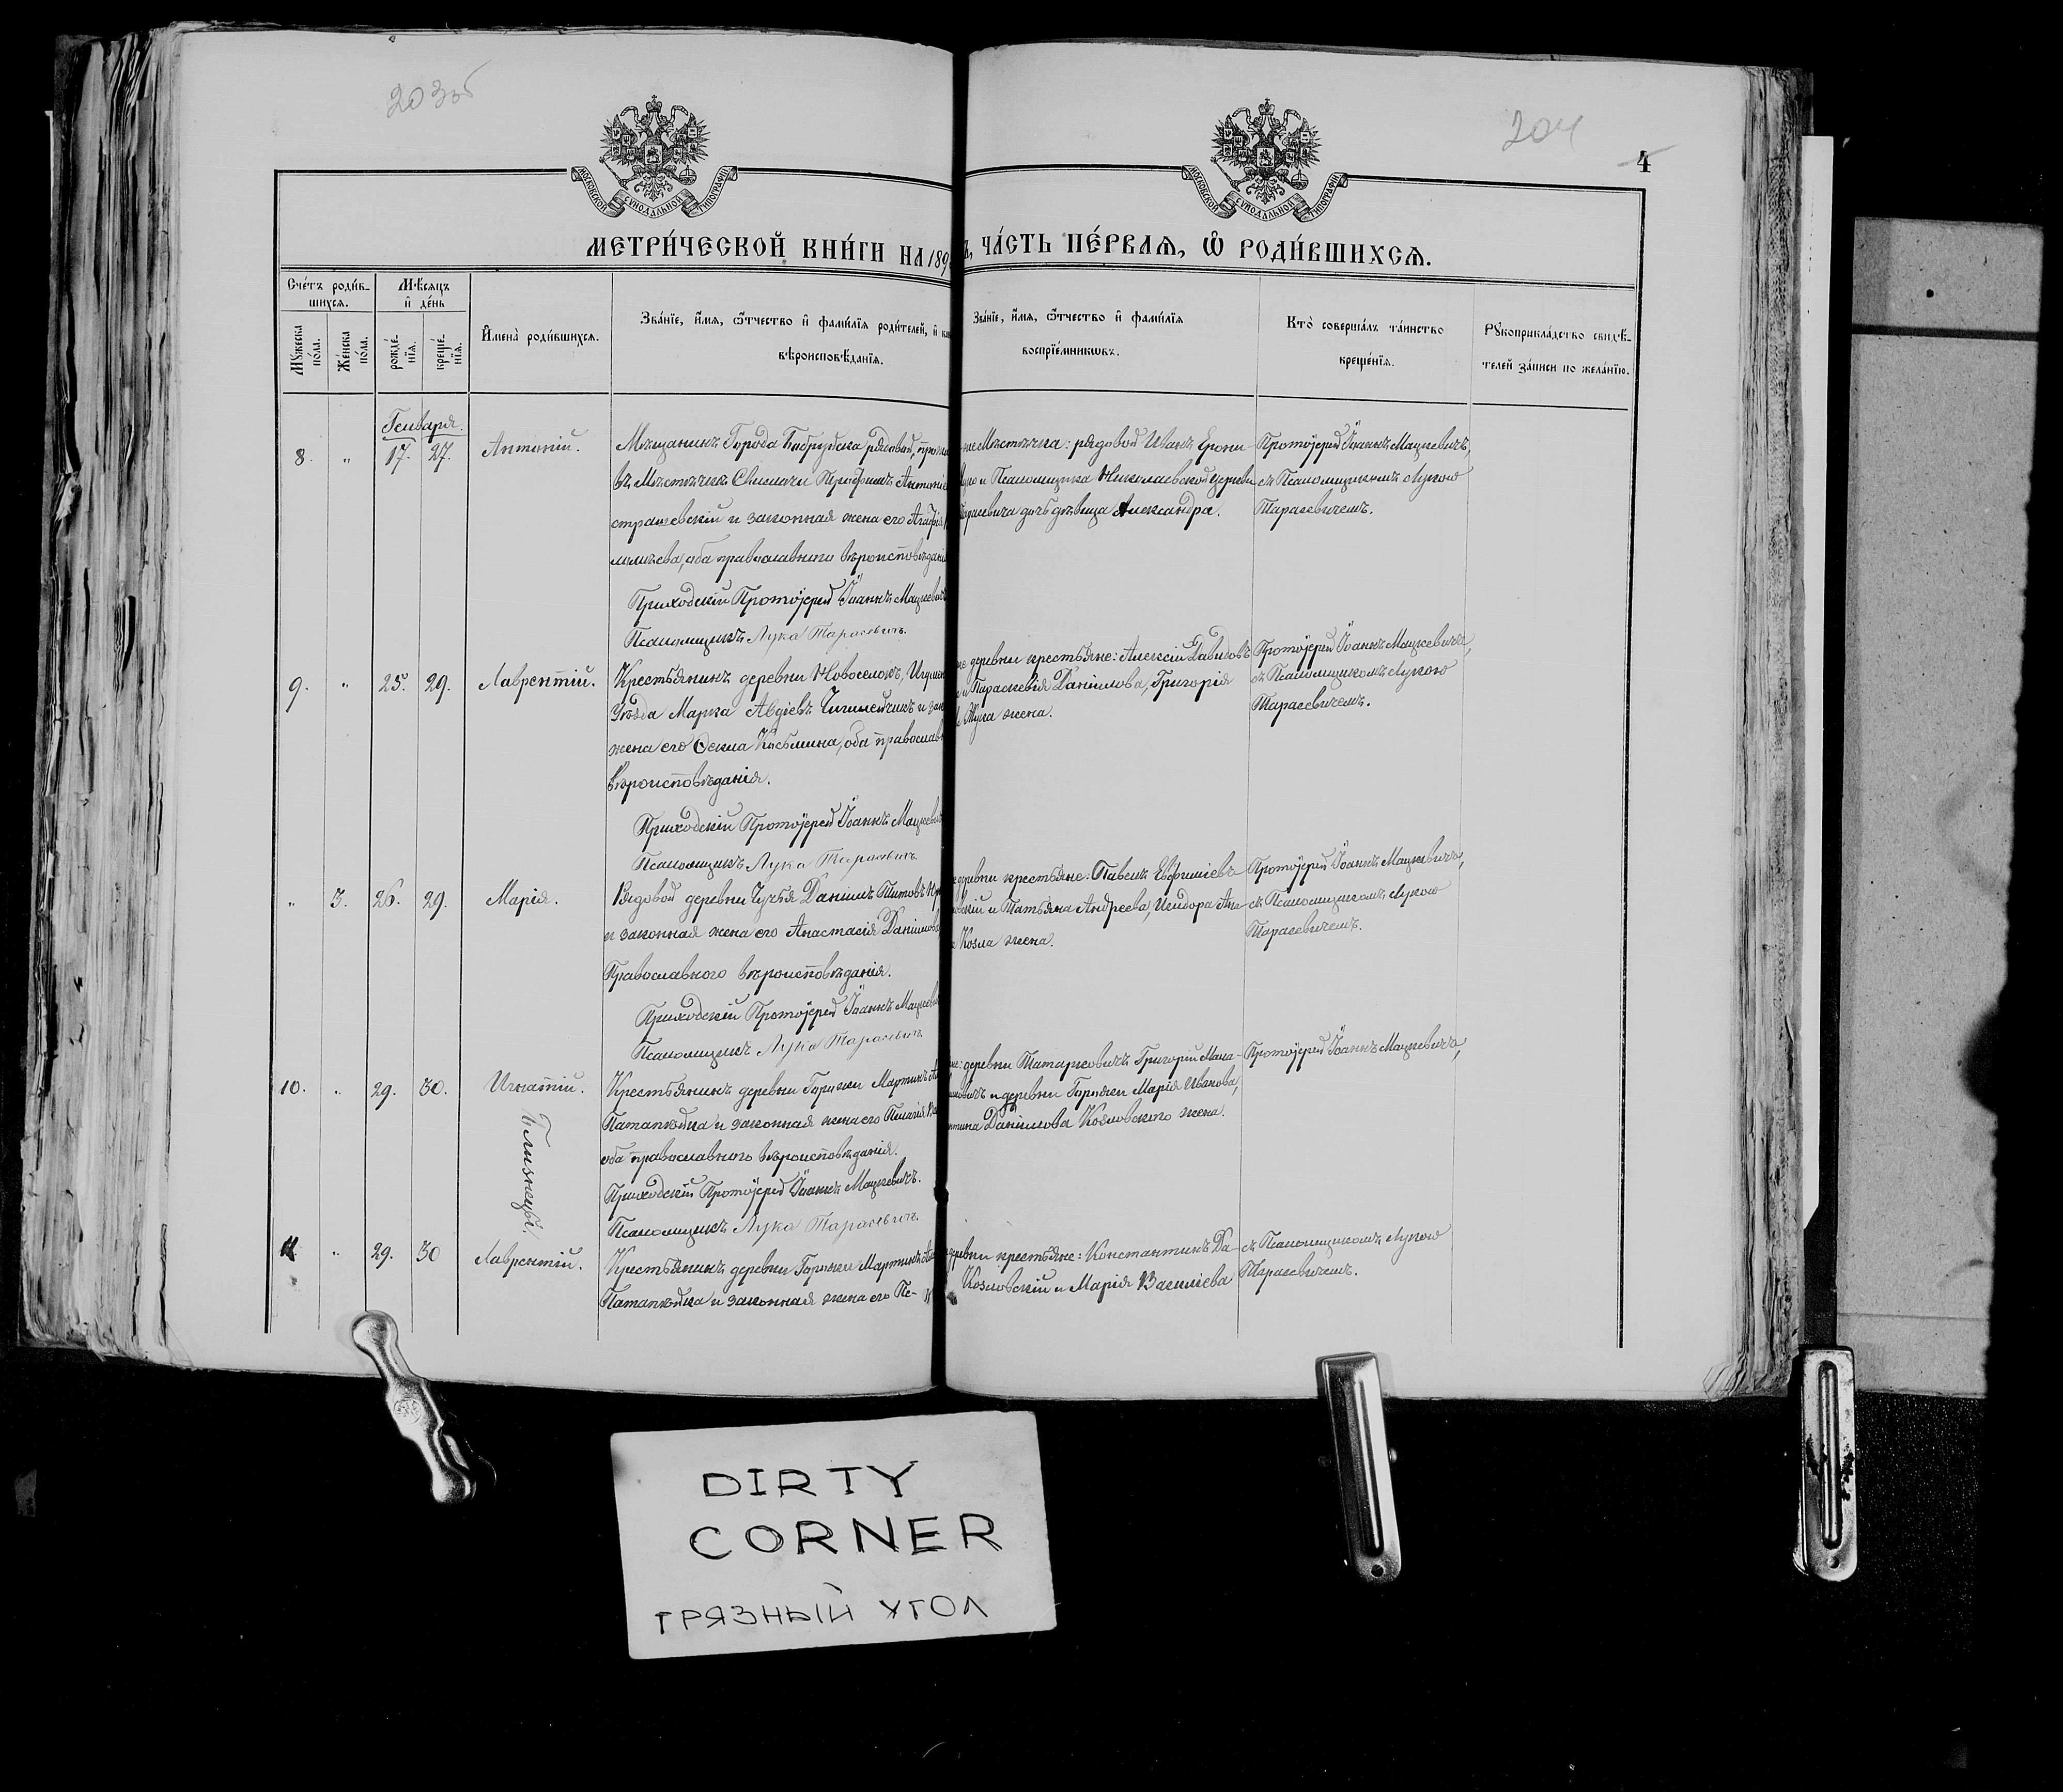 203об
204
4
МОСКОВСКОЙ СУНОДАЛЬНОЙ ТИПОГРАФІИ
МОСКОВСКОЙ СУНОДАЛЬНОЙ ТИПОГРАФІИ
МЕТРИ́ЧЕСКОЙ КНИ́ГИ НА 189
Ъ, ЧА́СТЬ ПЕ́РВАѦ, Ѽ РОДИ́ВШИХСѦ.
Сче́тъ роди́в-
шихсѧ.
Мѣ́сѧцъ
и҆ де́нь
Мꙋ́жеска по́ла.
Же́нска по́ла.
рожде́нїѧ.
креще́нїѧ.
И҆мена̀ роди́вшихсѧ.
Зва́нїе, и҆́мѧ, ѻ҆́тчество и҆ фами́лїѧ роди́телей, и҆
вѣроисповѣ́данїѧ.
Зва́нїе, и҆́мѧ, ѻ҆́тчество и҆ фами́лїѧ
воспрїе́мникѡвъ.
Кто̀ соверша́лъ та́инство
креще́нїѧ.
Рꙋкоприкла́дство свидѣ́-
телей за́писи по жела́нїю.
Генваря.
8. " 17. 27. Антоній.
Мѣщанинъ Города Бобруйска рядовой,
въ Мѣстечкѣ Свислочи Трофимъ Антоніе
страшевскій и законная жена его Агафія
оба православнаго вѣроисповѣдані
Приходскій Протоіерей Іоаннъ Мацкевичъ
Псаломщикъ Лука Тарасевичъ.
Мѣстечка: рядовой Иванъ
и Псаломщика Николаевской церкви
Тарасевича дочь дѣвица Александра.
Протоіерей Іоаннъ Мацкевичъ,
съ Псаломщикомъ Лукою
Тарасевичемъ.
9. " 25. 29. Лаврентій.
Крестьянинъ деревни Новоселокъ, Игумен
Уѣзда Марка Авдіевъ и зак
жена его Ѳекла Косьмина, оба православн
вѣроисповѣданія.
Приходскій Протоіерей Іоаннъ Мацкевичъ
Псаломщикъ Лука Тарасевичъ
деревни крестьяне: Алексій Давидовъ
и Параскевія Даніилова, Григорія
жена.
Протоіерей Іоаннъ Мацкевичъ,
съ Псаломщикомъ Лукою
Тарасевичемъ.
" 3. 26. 29. Марія.
Рядовой деревни Чучья Даніилъ Титовъ
и законная жена его Анастасія Даніилова
Православнаго вѣроисповѣданія.
Приходскій Протоіерей Іоаннъ Мацкевичъ
Псаломщикъ Лука Тарасевичъ
деревни крестьяне: Павелъ Евфиміевъ
и Татьяна Андреева, Исидора
Козла жена.
Протоіерей Іоаннъ Мацкевичъ,
съ Псаломщикомъ Лукою
Тарасевичемъ.
10. " 29. 30. Игнатій.
Близнецы
Крестьянинъ деревни Горожи Мартинъ
Патапейка и законная жена его Пелагія
оба православнаго вѣроисповѣданія.
Приходскій Протоіерей Іоаннъ Мацкевичъ.
Псаломщикъ Лука Тарасевичъ
деревни Татарковичъ Григорій
и деревни Горожи Марія Иванова,
Даніилова Козловскаго жена.
Протоіерей Іоаннъ Мацкевичъ,
11 " 29. 30 Лаврентій.
Крестьянинъ деревни Горожи Мартинъ
Патапейка и законная жена его Пе-
деревни крестьяне: Константинъ Да-
Козловскій и Марія Василіева
съ Псаломщикомъ Лукою
Тарасевичемъ.
DIRTY
CORNER
ГРЯЗНЫЙ УГОЛ